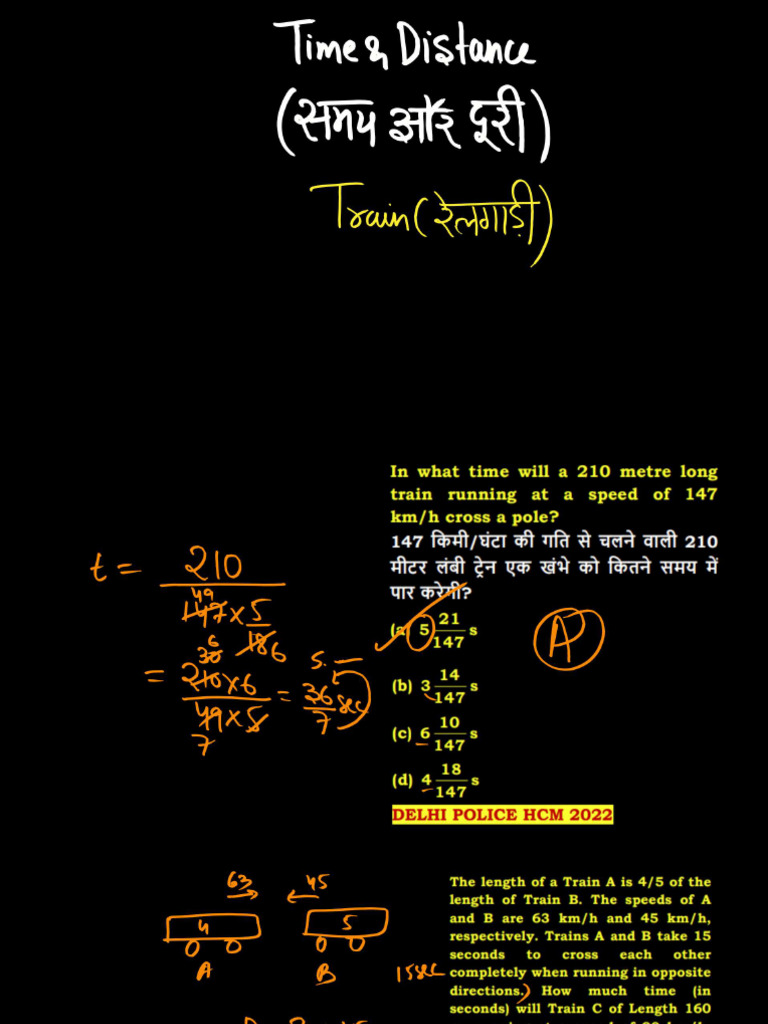 Time & Distance
(समय और दूरी)
Train (रेलगाड़ी)
In what time will a 210 metre long
train running at a speed of 147
km/h cross a pole?
147 किमी/घंटा की गति से चलने वाली 210
मीटर लंबी ट्रेन एक खंभे को कितने समय में
पार करेगी?
(a) 5 21/147 s
(b) 3 14/147 s
(c) 6 10/147 s
(d) 4 18/147 s
DELHI POLICE HCM 2022
t = 210
147 × 5
49
18 6
6
30
= 210 × 6
49 × 5
7
= 36/7 sec
5. —
A
63
45
4
5
A
B
15sec
The length of a Train A is 4/5 of the
length of Train B. The speeds of A
and B are 63 km/h and 45 km/h,
respectively. Trains A and B take 15
seconds to cross each other
completely when running in opposite
directions. How much time (in
seconds) will Train C of Length 160